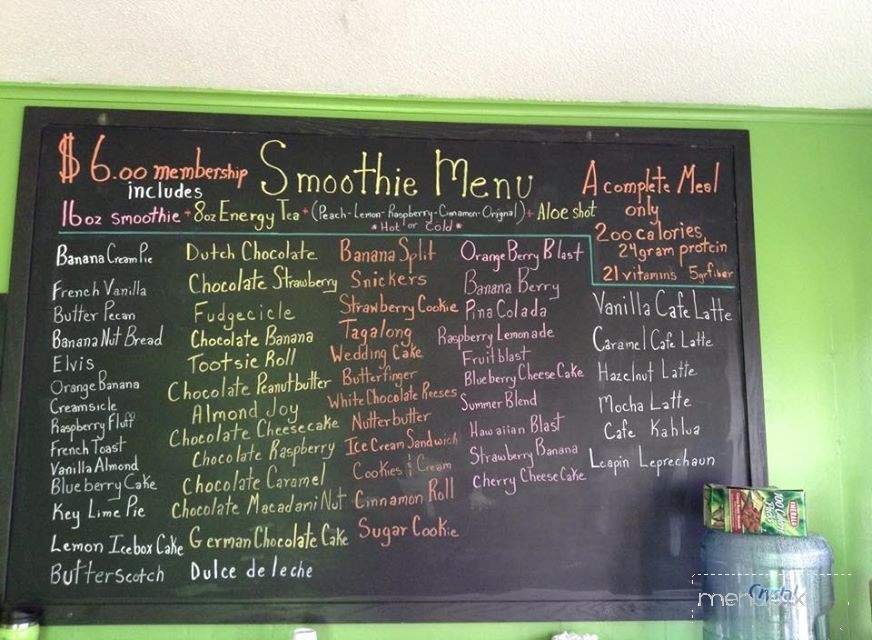 $6.00 membership
includes
Smoothie Menu
16oz smoothie + 8oz Energy Tea + (Peach-Lemon-Raspberry-Cinnamon-Orignal) + Aloe shot
*Hot or Cold*
A complete Meal
only
200 calories,
24gram protein
21 vitamins 5grfiber
Banana Cream Pie
French Vanilla
Butter Pecan
Banana Nut Bread
Elvis
Orange Banana
Creamsicle
Raspberry Fluff
French Toast
Vanilla Almond
Blueberry Cake
Key Lime Pie
Lemon Icebox Cake
Butterscotch
Dutch Chocolate
Chocolate Strawberry
Fudgecicle
Chocolate Banana
Tootsie Roll
Chocolate Peanutbutter
Almond Joy
Chocolate Cheesecake
Chocolate Raspberry
Chocolate Caramel
Chocolate Macadami Nut
German Chocolate Cake
Dulce de leche
Banana Split
Snickers
Strawberry Cookie
Tagalong
Wedding Cake
Butterfinger
White Chocolate Reeses
Nutterbutter
Ice Cream Sandwich
Cookies & Cream
Cinnamon Roll
Sugar Cookie
Orange Berry Blast
Banana Berry
Pina Colada
Raspberry Lemonade
Fruit blast
Blueberry Cheese Cake
Summer Blend
Hawaiian Blast
Strawberry Banana
Cherry Cheese Cake
Vanilla Cafe Latte
Caramel Cafe Latte
Hazelnut Latte
Mocha Latte
Cafe Kahlua
Leapin Leprechaun
100 Calorie